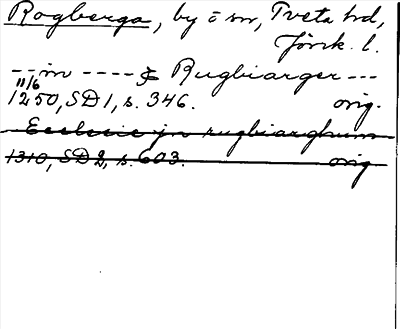 Rogberga, by o sn, Tveta hd,
Jönk. l.
-- in ---- & Rugbiarger ---
11/6
1250, SD 1, s. 346. orig.
Ecclesie jn rugbiarghum
1310, SD 2, s. 603. orig.